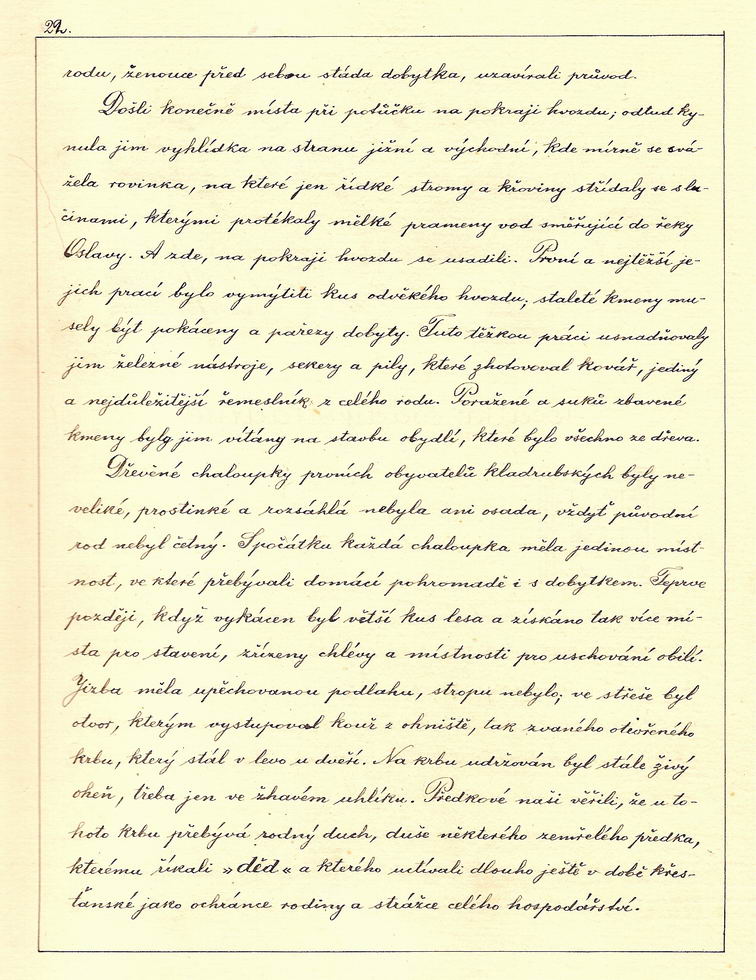 22.
rodu, ženouce před sebou stáda dobytka, uzavírali průvod.
Došli konečně místa při potůčku na pokraji hvozdu; odtud ky-
nula jim vyhlídka na stranu jižní a východní, kde mírně se svá-
žela rovinka, na které jen řídké stromy a křoviny střídaly se s lu-
činami, kterými protékaly mělké prameny vod směřující do řeky
Oslavy. A zde, na pokraji hvozdu se usadili. První a nejtěžší je-
jich prací bylo vymýtiti kus odvěkého hvozdu; staleté kmeny mu-
sely být pokáceny a pařezy dobyty. Tuto těžkou práci usnadňovaly
jim železné nástroje, sekery a pily, které zhotovoval kovář, jediný
a nejdůležitější řemeslník z celého rodu. Poražené a suků zbavené
kmeny byly jim vítány na stavbu obydlí, které bylo všechno ze dřeva.
Dřevěné chaloupky prvních obyvatelů kladrubských byly ne-
veliké, prostinké a rozsáhlá nebyla ani osada, vždyť původní
rod nebyl četný. Spočátku každá chaloupka měla jedinou míst-
nost, ve které přebývali domácí pohromadě i s dobytkem. Teprve
později, když vykácen byl větší kus lesa a získáno tak více mí-
sta pro stavení, zřízeny chlévy a místnosti pro uschování obilí.
Jizba měla upěchovanou podlahu, stropu nebylo; ve střeše byl
otvor, kterým vystupoval kouř z ohniště, tak zvaného otevřeného
krbu, který stál v levo u dveří. Na krbu udržován byl stále živý
oheň, třeba jen ve žhavém uhlíku. Předkové naši věřili, že u to-
hoto krbu přebývá rodný duch, duše některého zemřelého předka,
kterému říkali »děd« a kterého uctívali dlouho ještě v době křes-
ťanské jako ochránce rodiny a strážce celého hospodářství.